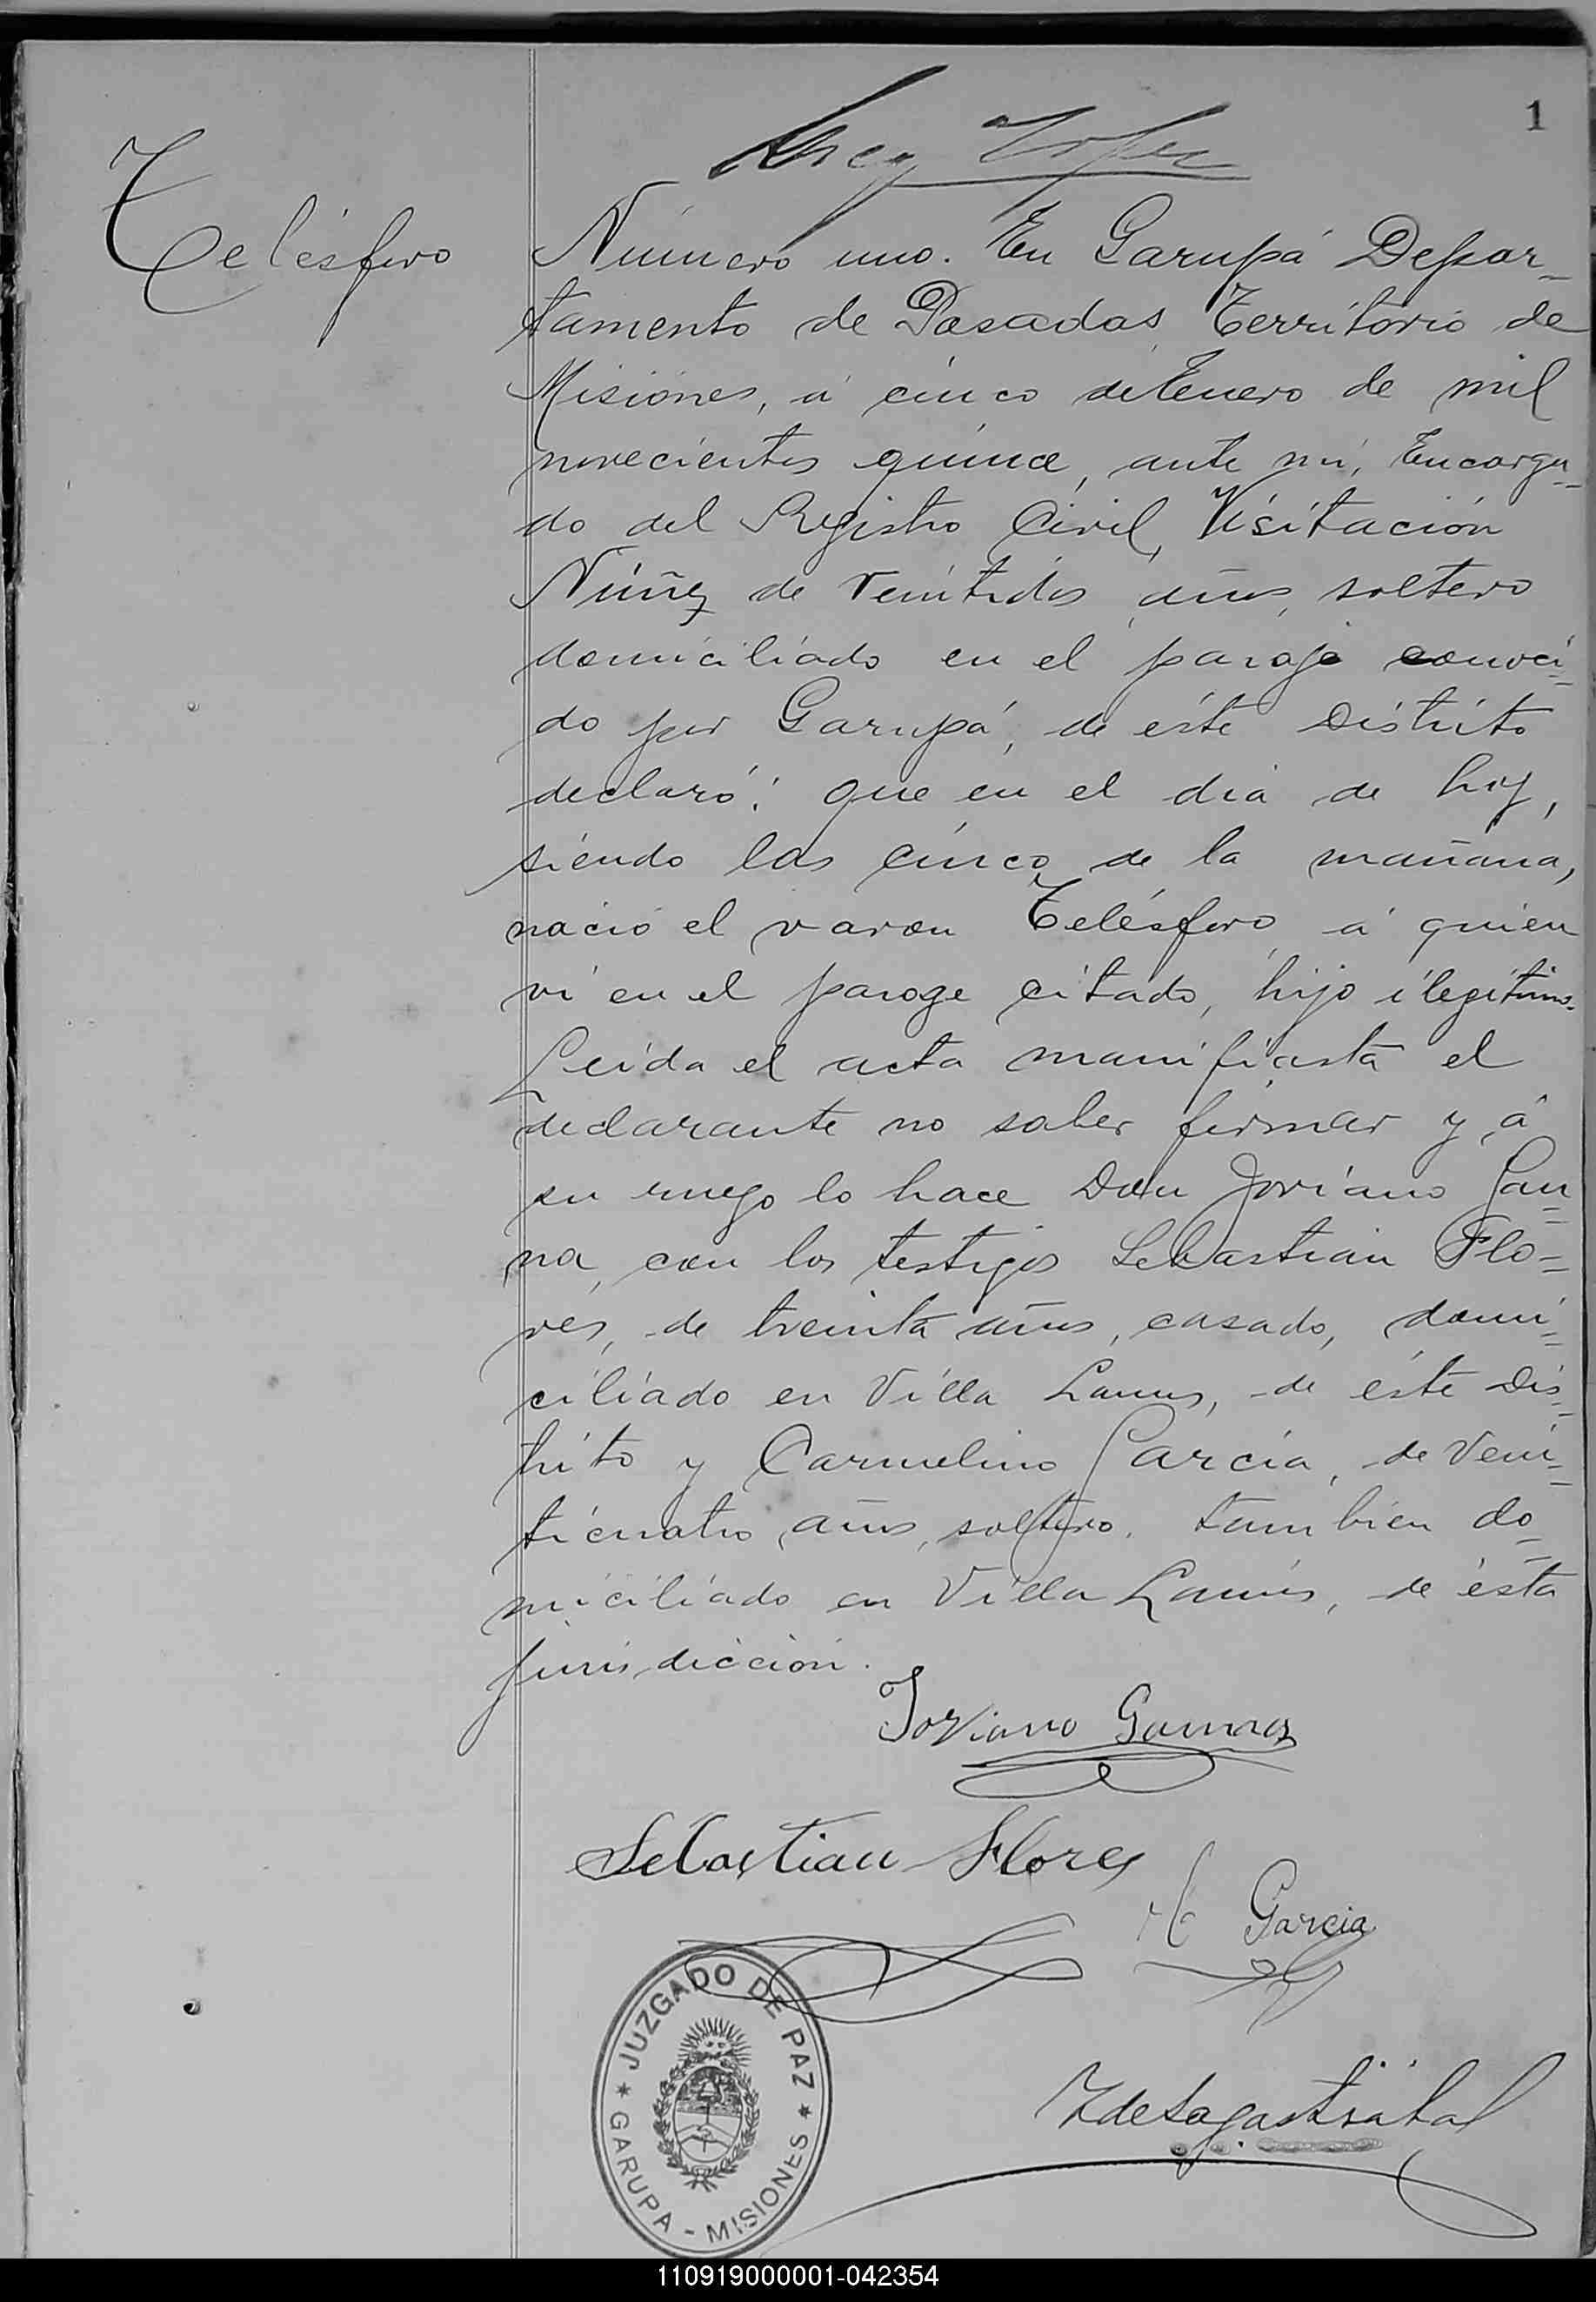 1
Telésforo
Número uno. En Garupá Depar-
tamento de Posadas, Territorio de
Misiónes, á cinco de Enero de mil
novecientos quince, ante mi, Encarga-
do del Registro Civil, Visitación
Núñez de veintidos años, soltero
domiciliado en el paraje conoci-
do por Garupá, de éste Distrito
declaró: que en el dia de hoy,
siendo las cinco de la mañana,
nació el varon Telésforo á quien
vi en el parage citado, hijo ilegitimo.
Leida el acta manifiesta el
declarante no saber firmar y á
su ruego lo hace Don Joviano Gau-
na, con los testigos Sebastian Flo-
res, de treinta años, casado, domi-
ciliado en Villa Lanus, de éste Dis-
trito y Carmelino Garcia, de vein-
ticuatro años, soltero, tambien do-
miciliado en Villa Lanús, de ésta
jurisdicción.
Joviano Gauna
Sebastian Flores
Garcia
JUZGADO DE PAZ
GARUPA - MISIONES
110919000001-042354